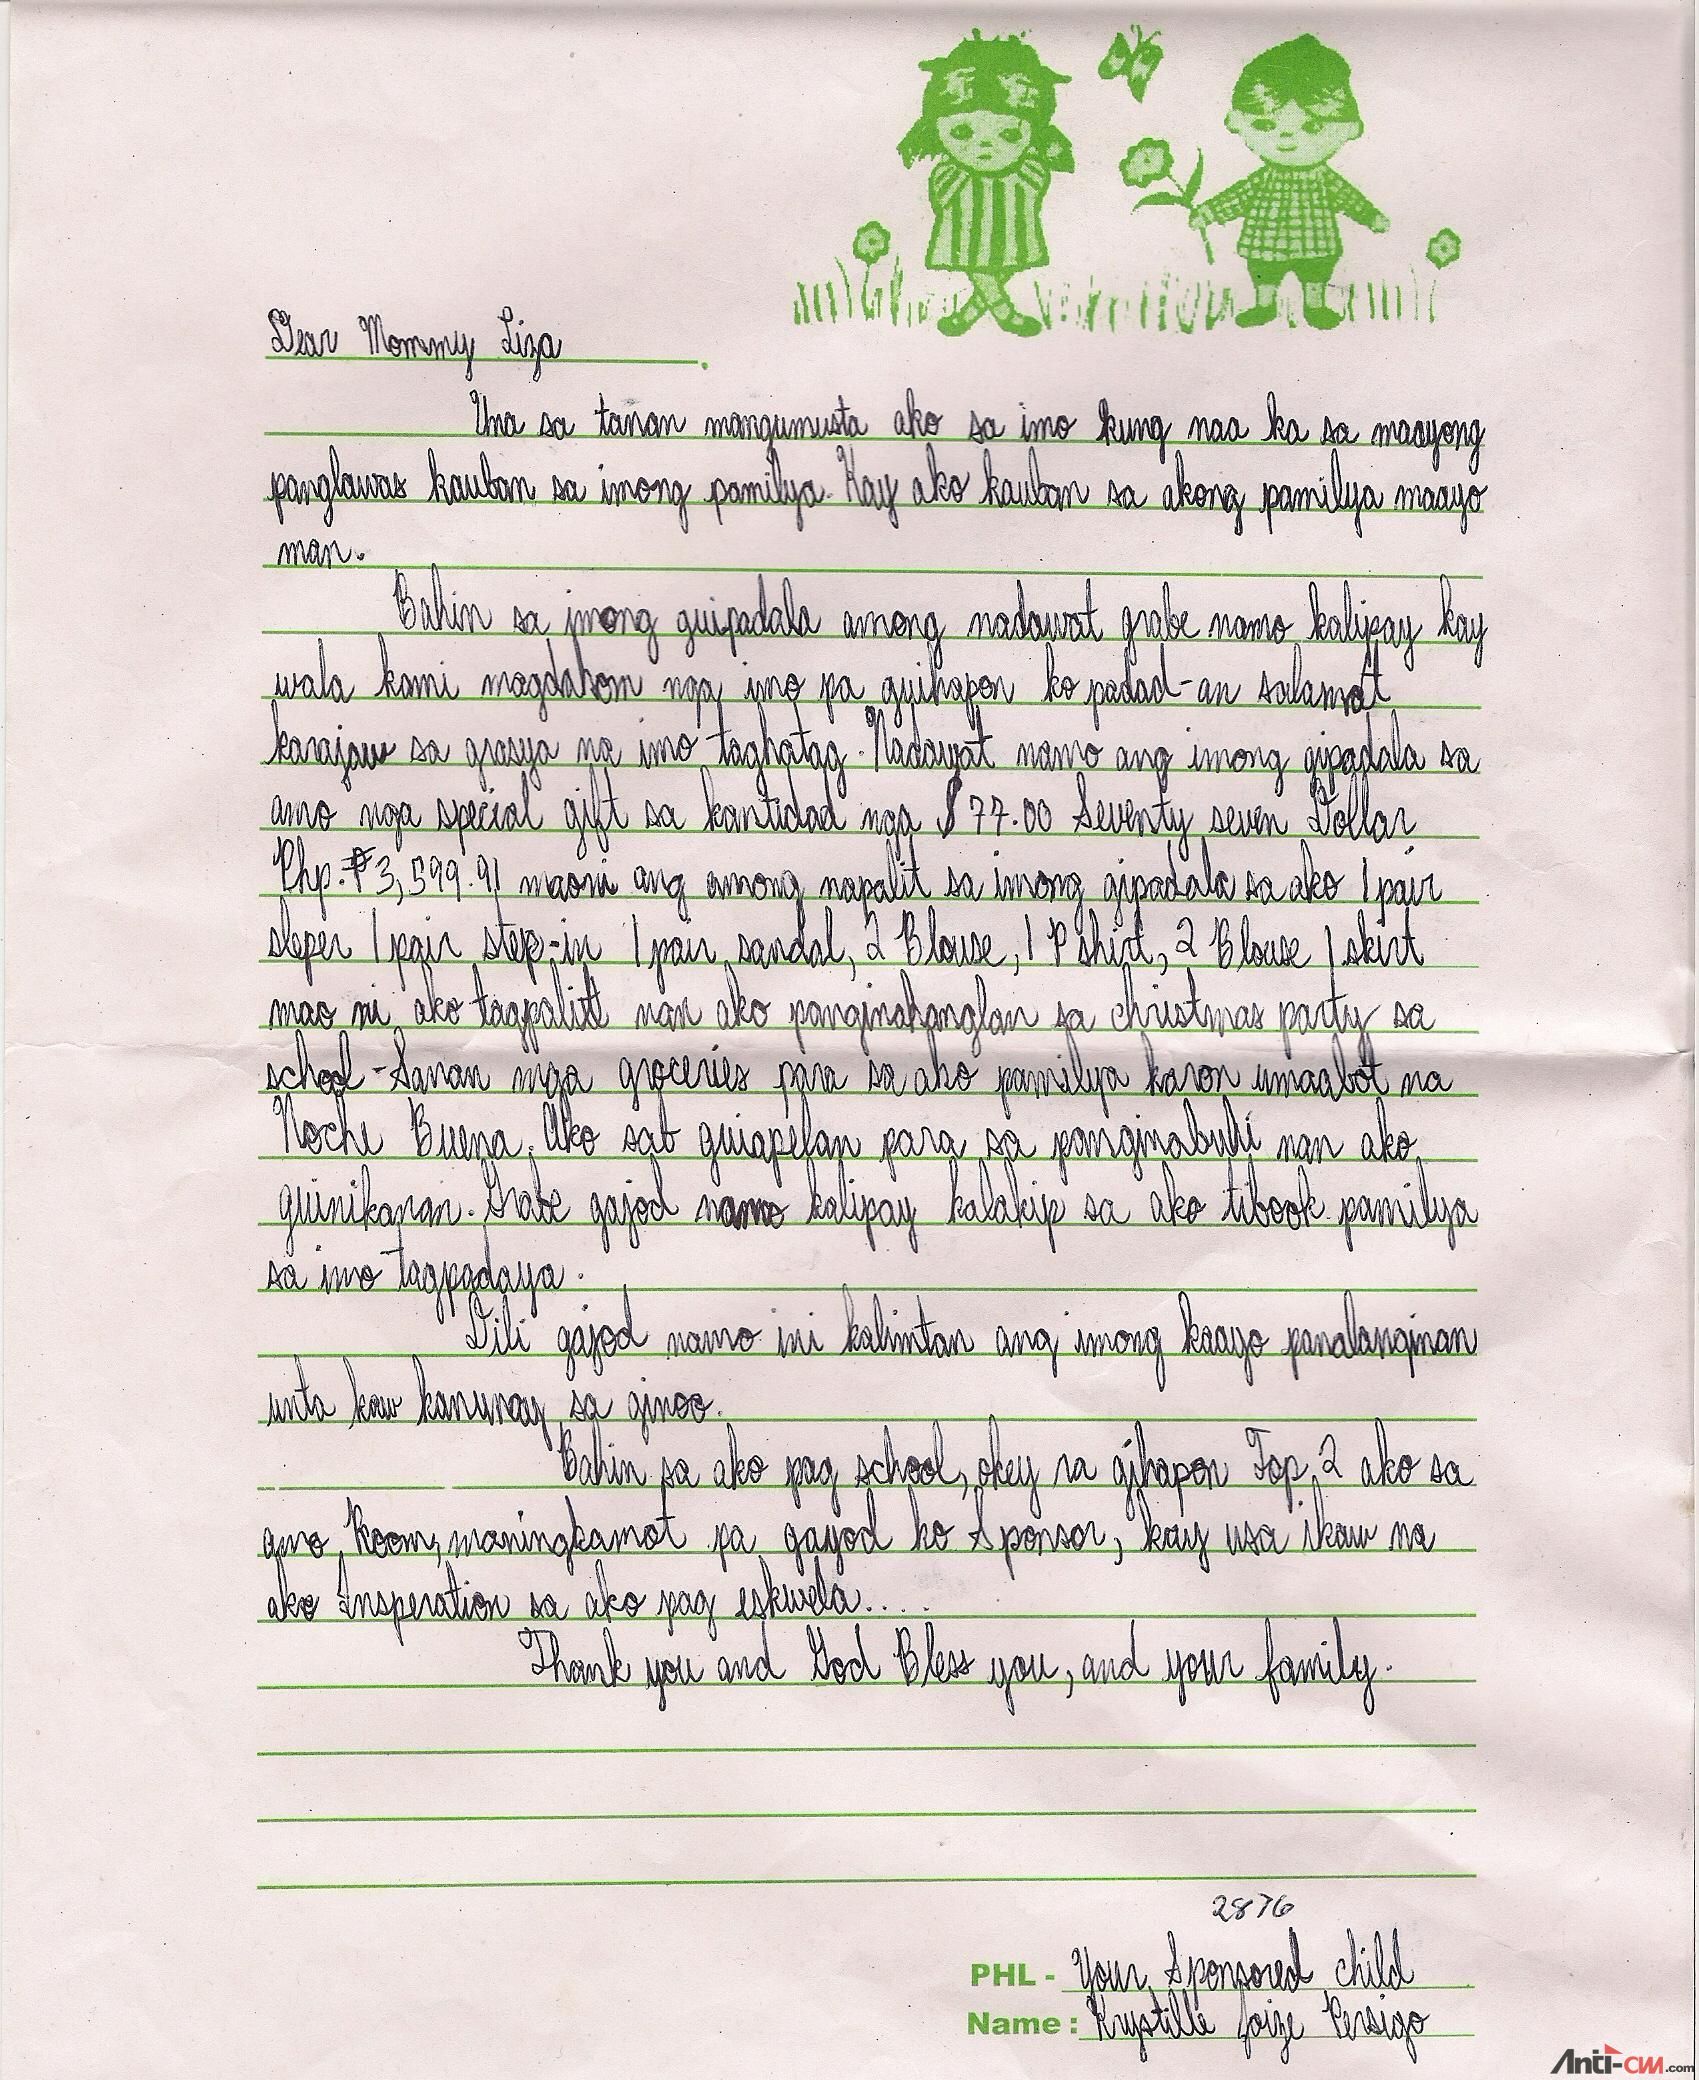 Dear Mommy Liza
Una sa tanan mangumusta ako sa imo kung naa ka sa maayong
panglawas kauban sa imong pamilya. Kay ako kauban sa akong pamilya maayo
man.
Bahin sa imong guipadala among nadawat grabe namo kalipay kay
wala kami magdahom nga imo pa guihapon ko padad-an salamat
karajaw sa grasya na imo taghatag. Nadawat namo ang imong gipadala sa
amo nga special gift sa kantidad nga $77.00 Seventy seven Dollar
Php. ₱3,599.91 maoni ang among napalit sa imong gipadala sa ako 1 pair
sleper 1 pair step-in 1 pair sandal, 2 Blouse, 1 P shirt, 2 Blouse 1 skirt
mao ni ako tagpalit nan ako panginahanglan sa christmas party sa
school - Sanan mga groceries para sa ako pamilya karon umaabot na
Noche Buena. Ako sab guiapelan para sa panginabuhi nan ako
guinikanan. Grabe gajod namo kalipay kalakip sa ako tibook pamilya
sa imo tagpadaya.
Dili gajod namo ini kalimtan ang imong kaayo panalanginan
unta kaw kanunay sa ginoo.
Bahin sa ako pag school, okey ra gihapon Top 2 ako sa
amo Room, maningkamot pa gayod ko Sponsor, kay usa ikaw na
ako Insperation sa ako pag eskwela.....
Thank you and God Bless you, and your family.
2876
PHL - Your Sponsored child
Name: Krystille Joize Persigo
Anti-CM.com